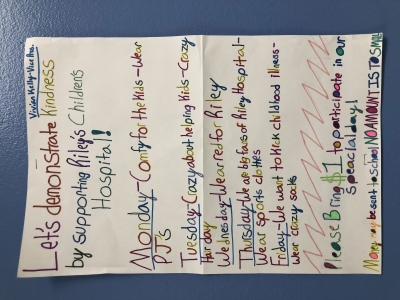 Vivian Kelly-Vice Pres.
Let's demonstrate Kindness
by supporting Riley's Children's
Hospital!
Monday-Comfy for the Kids-Wear
PJ's
Tuesday-Crazy about helping Kids-Crazy
Hair day
Wednesday-Wear red for Riley
Thursday-We are big fans of Riley Hospital-
Wear sports clothes
Friday-We want to kick childhood illness-
Wear crazy socks
Please Bring $1 to participate in our
speacial day!
Money may be sent to school NO AMOUNT IS TO SMALL